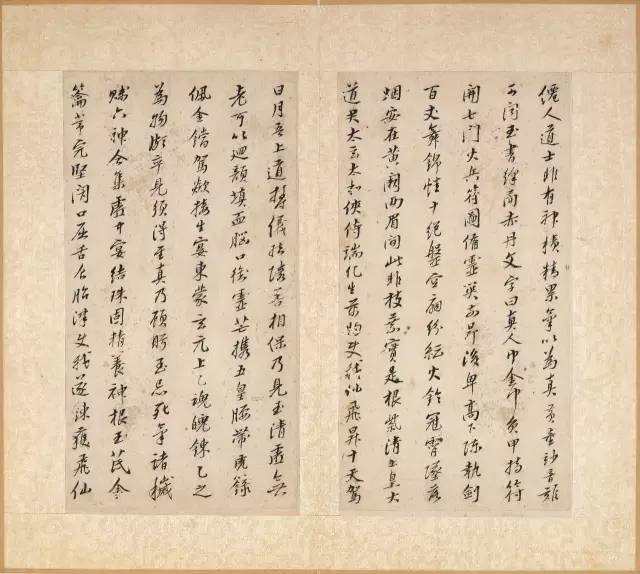 僊人道士非有神積精累氣以為真黃童妙音難
可聞玉書絳簡赤丹文字曰真人巾金巾負甲持符
開七門火兵符圖備靈關前昂後卑高下陳執劍
百丈舞錦幡十絕盤空扇紛紜火鈴冠霄隊落
烟安在黃闕兩眉間此非枝葉實是根紫清上皇大
道君太玄太和俠侍端化生萬物使我仙飛昇十天駕
日月吾上道鬱儀結璘善相保乃見玉清虛無
老可以迴顏填血腦口銜靈芒攜五皇腰帶虎籙
佩金鐺駕欻接生宴東蒙玄元上乙魂魄鍊乙之
為物頗卒見須得至真乃顧眄玉忌死氣諸穢
賤六神合集虛中宴結珠固精養神根玉茈金
籥常完堅閉口屈舌食胎津使我遂鍊獲飛仙